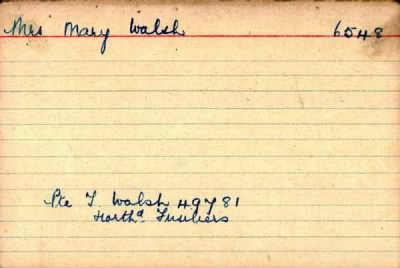 Mrs Mary Walsh 6548
Pte T. Walsh 49781
North'd Fusiliers